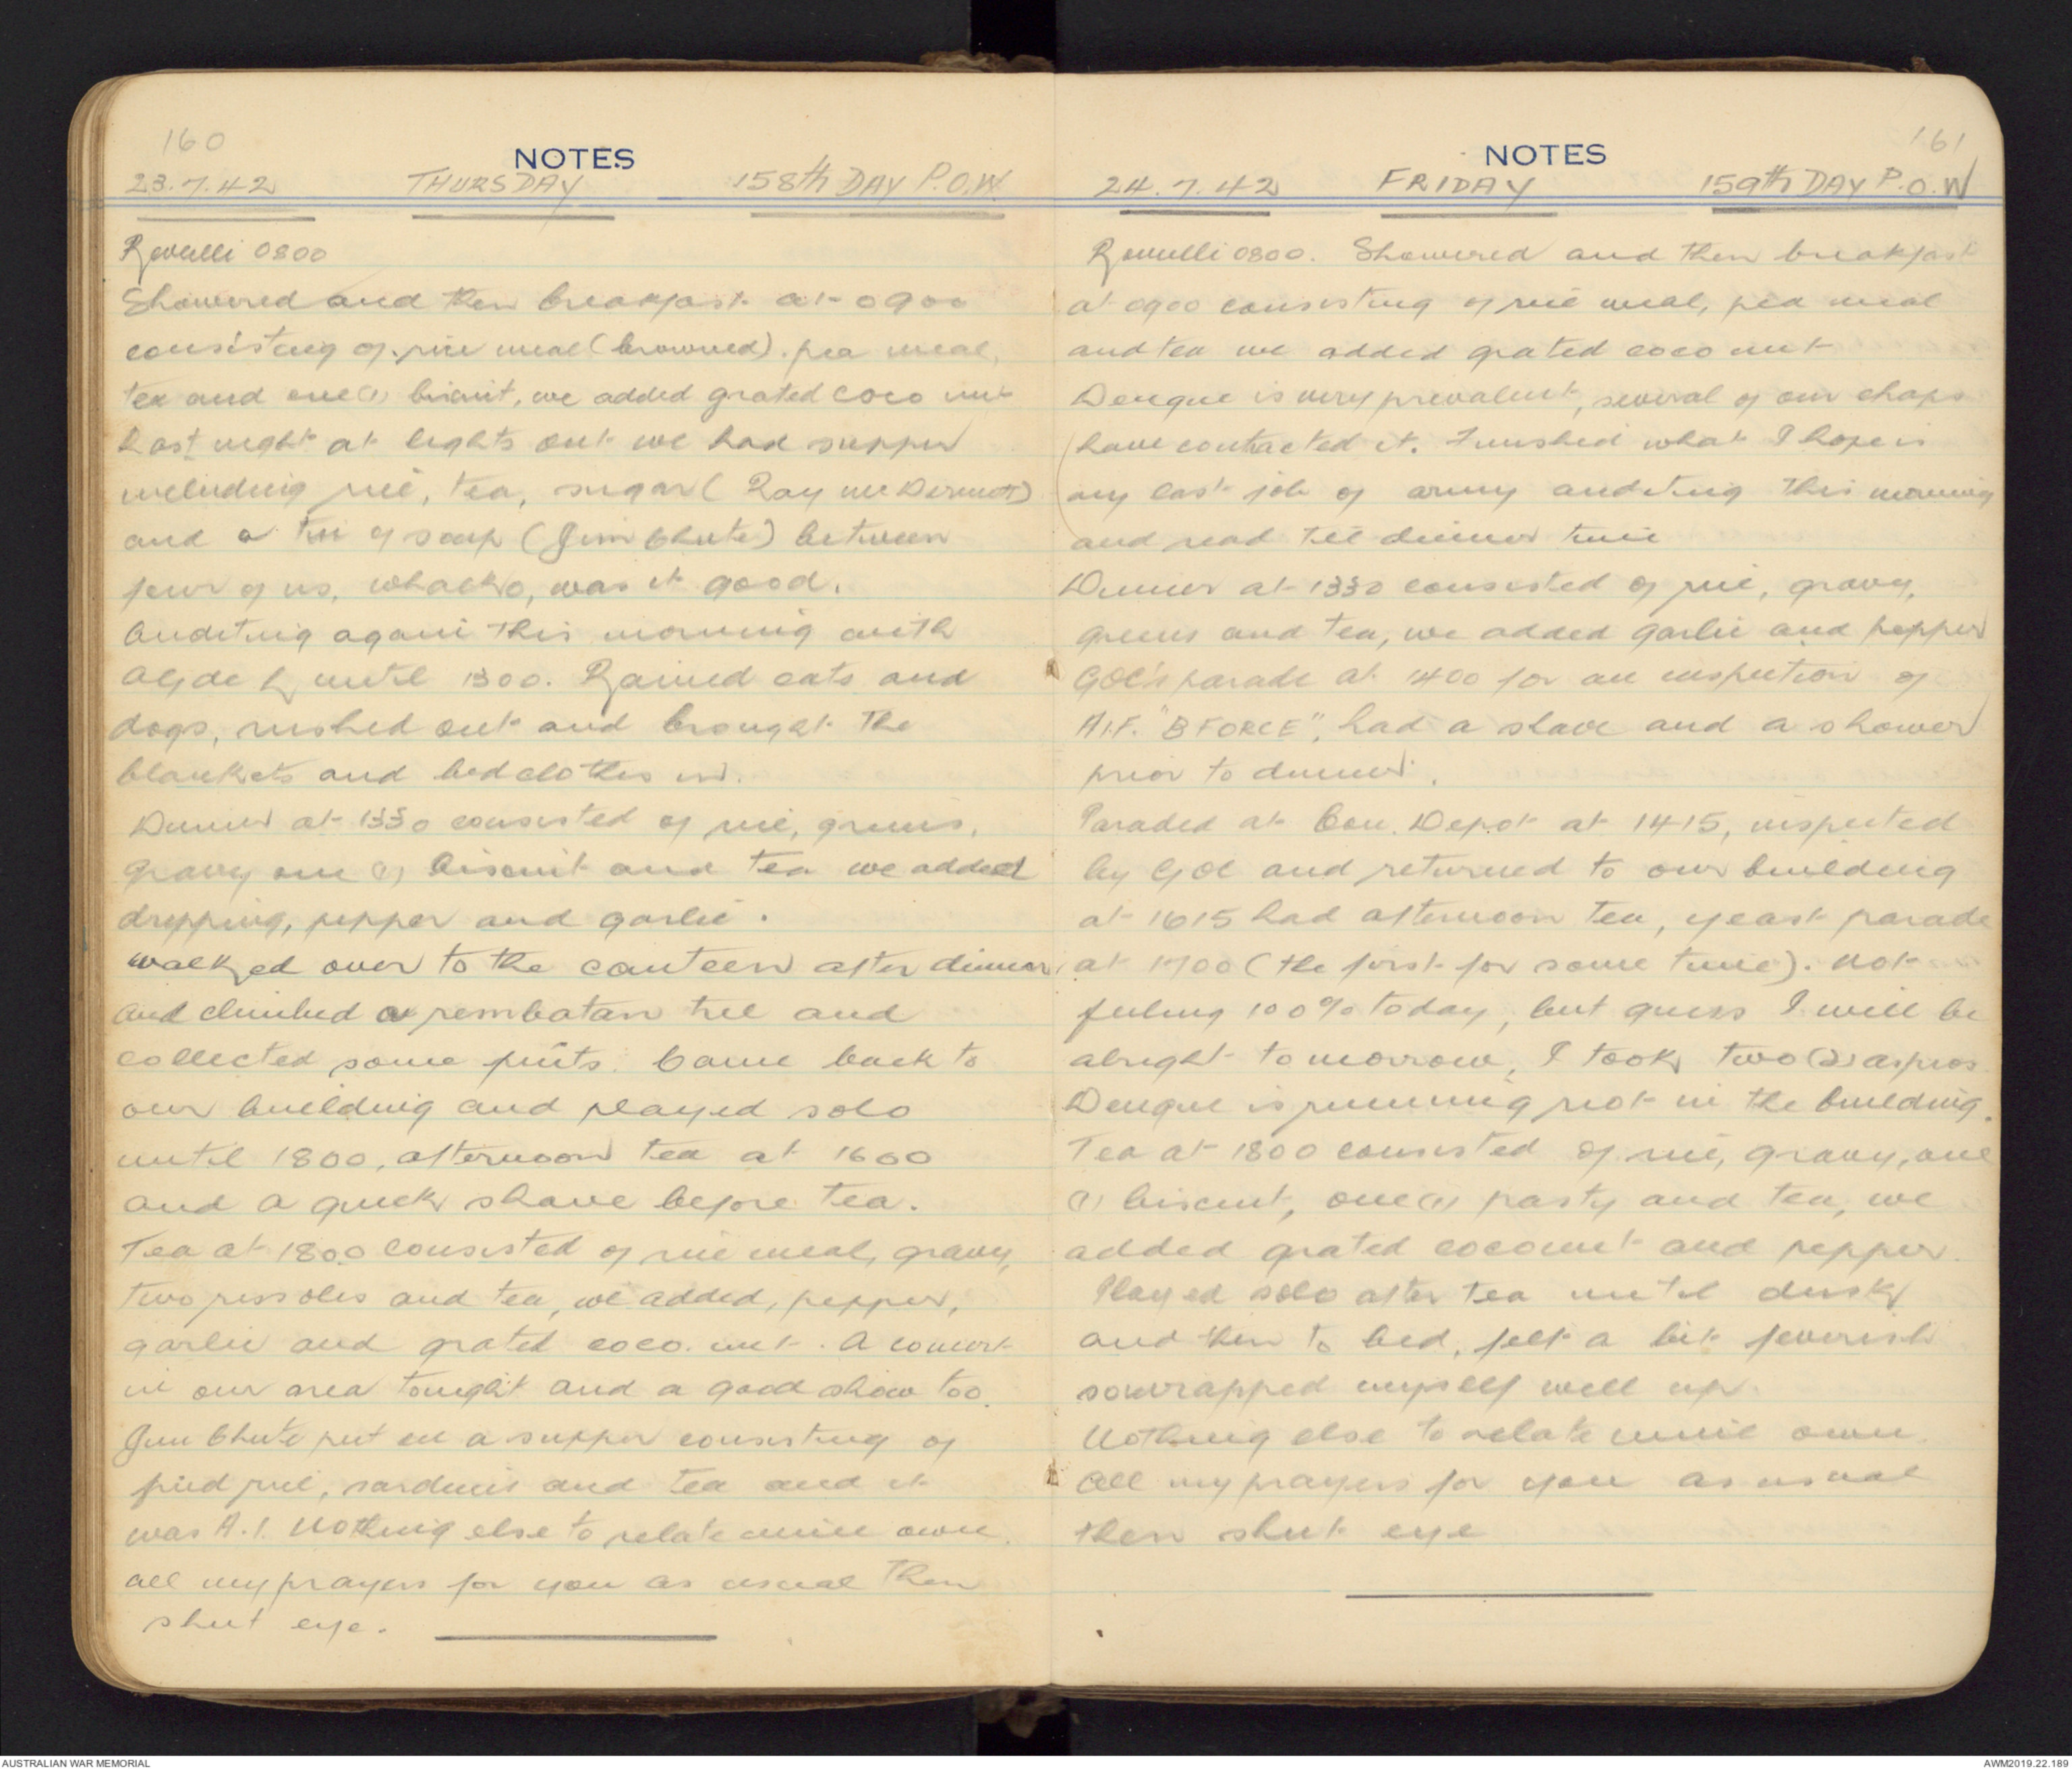 160
NOTES
23.7.42 THURSDAY 158th DAY P.O.W.
Revelli 0800
Showered and then breakfast at 0900
consisting of rice meal (browned). pea meal,
tea and one (1) biscuit, we added grated coco nut
Last night at lights out we had supper
including rice, tea, sugar (Ray McDermott)
and a tin of soup (Jim Chute) between
four of us, whacko, was it good.
Auditing again this morning with
Clyde L until 1300. Rained cats and
dogs, rushed out and brought the
blankets and bedclothes in.
Dinner at 1330 consisted of rice, greens,
gravy one (1) biscuit and tea we added
dripping, pepper and garlic.
Walked over to the canteen after dinner,
and climbed a rembatan tree and
collected some fruits. Came back to
our building and played solo
until 1800, afternoon tea at 1600
and a quick shave before tea.
Tea at 1800 consisted of rice meal, gravy,
two rissoles and tea, we added, pepper,
garlic and grated coco. nut. A concert
in our area tonight and a good show too.
Jim Chute put on a supper consisting of
fried rice, sardines and tea and it
was A.1. Nothing else to relate mine own.
all my prayers for you as usual then
shut eye.
161
NOTES
24.7.42 FRIDAY 159th DAY P.O.W
Revelli 0800. Showered and then breakfast
at 0900 consisting of rice meal, pea meal
and tea we added grated coco nut
Dengue is very prevalent, several of our chaps
have contracted it. Finished what I hope is
my last job of army auditing this morning
and read till dinner time
Dinner at 1330 consisted of rice, gravy,
greens and tea, we added garlic and pepper
GOC's parade at 1400 for an inspection of
A.I.F. "B FORCE", had a shave and a shower
prior to dinner.
Paraded at Con. Depot at 1415, inspected
by GOC and returned to our building
at 1615 had afternoon tea, yeast parade
at 1700 (the first for some time). Not
feeling 100% today, but guess I will be
alright tomorrow, I took two (2) aspros.
Dengue is running riot in the building.
Tea at 1800 consisted of rice, gravy, one
(1) biscuit, one (1) pasty and tea, we
added grated coconut and pepper.
Played solo after tea until dusk
and then to bed, felt a bit feverish
so wrapped myself well up.
Nothing else to relate mine own.
All my prayers for you as usual
then shut eye
AUSTRALIAN WAR MEMORIAL
AWM2019.22.189